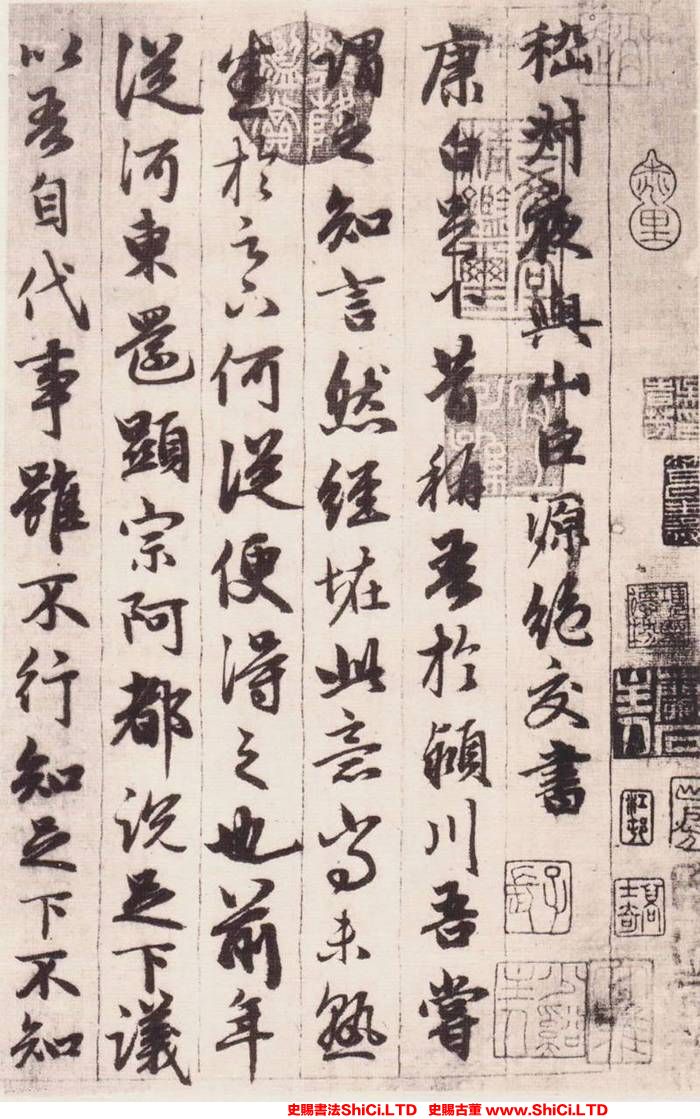 嵇叔夜與山巨源絕交書
康白足下昔稱吾於潁川吾嘗
謂之知言然經恠此意尚未熟
悉於足下何從便得之也前年
從河東還顯宗阿都說足下議
以吾自代事雖不行知足下不知
江邨
史賜書法ShiCi.LTD 史賜古董 www.ShiCi.LTD